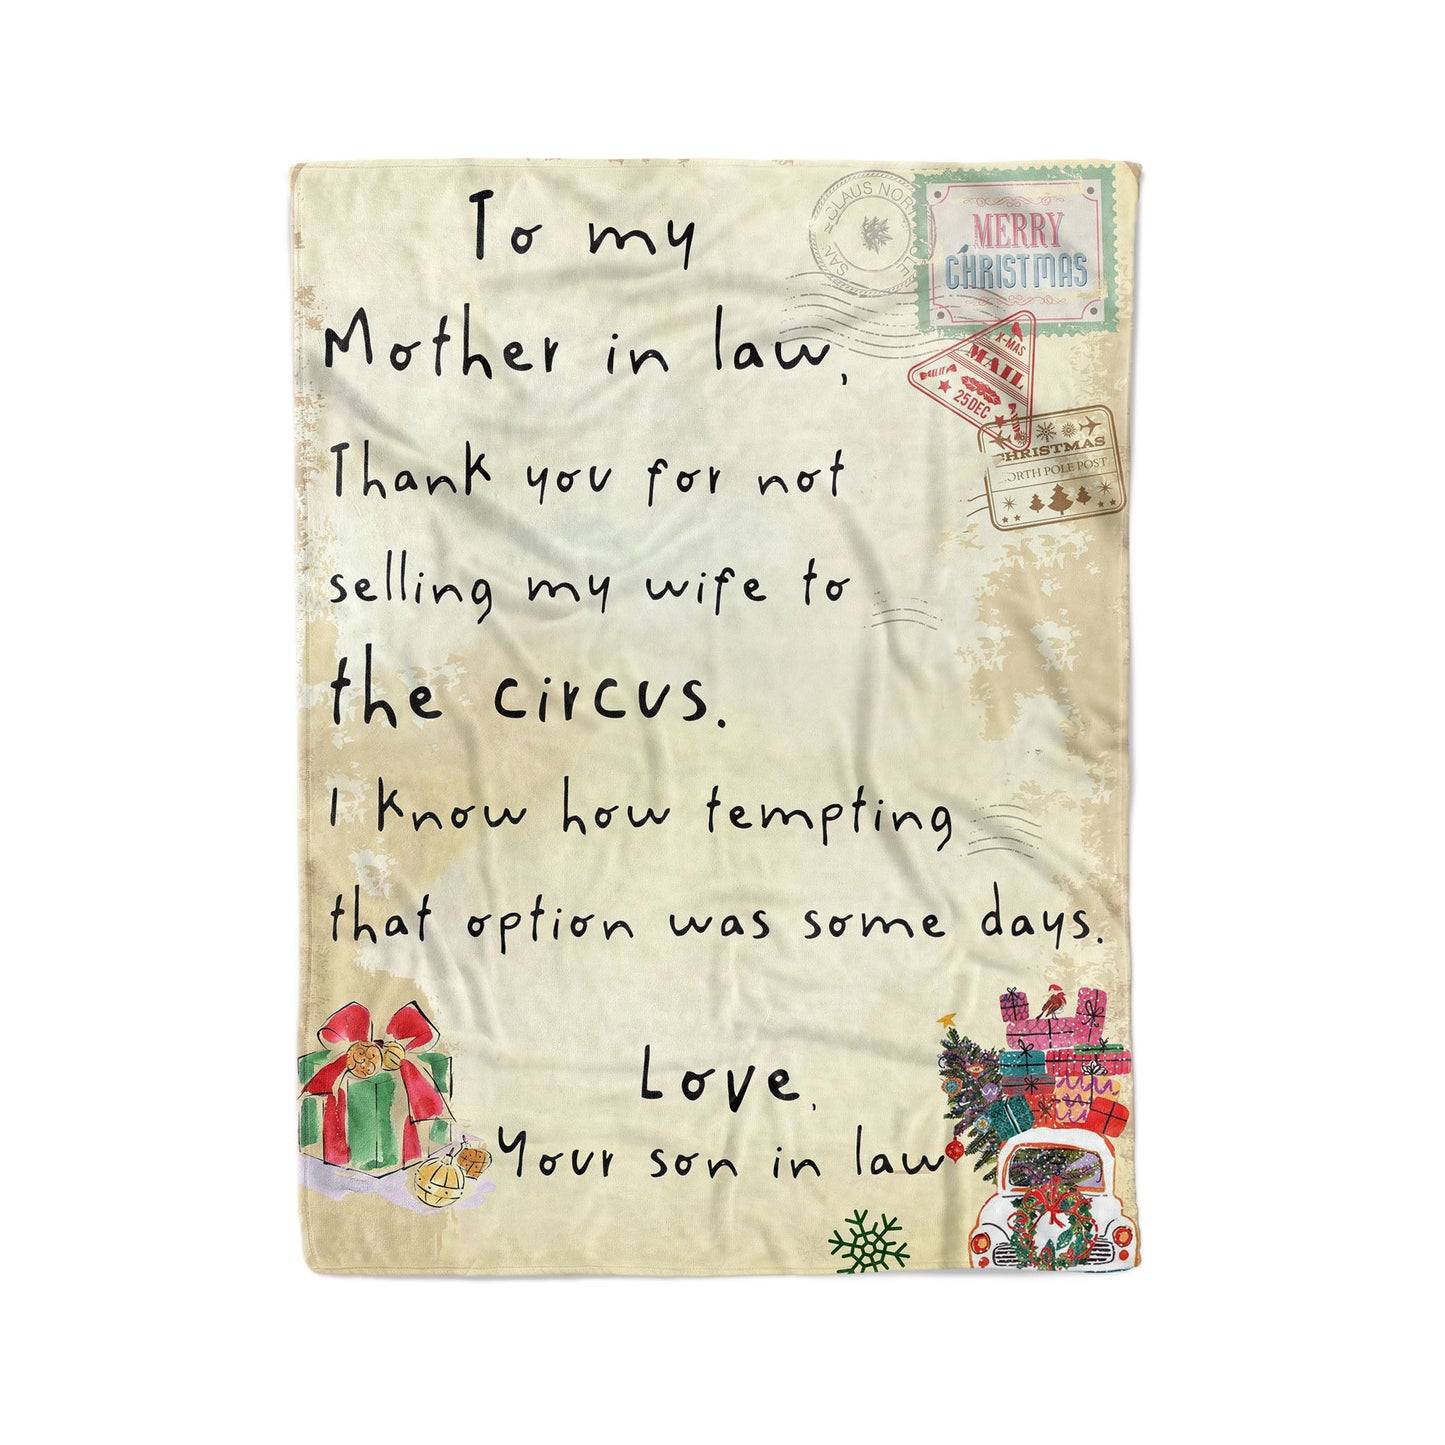 To my
Mother in law,
Thank you for not
selling my wife to
the circus.
I know how tempting
that option was some days.
Love,
Your son in law
MERRY
CHRISTMAS
X-MAS
MAIL
25 DEC
CHRISTMAS
NORTH POLE POST